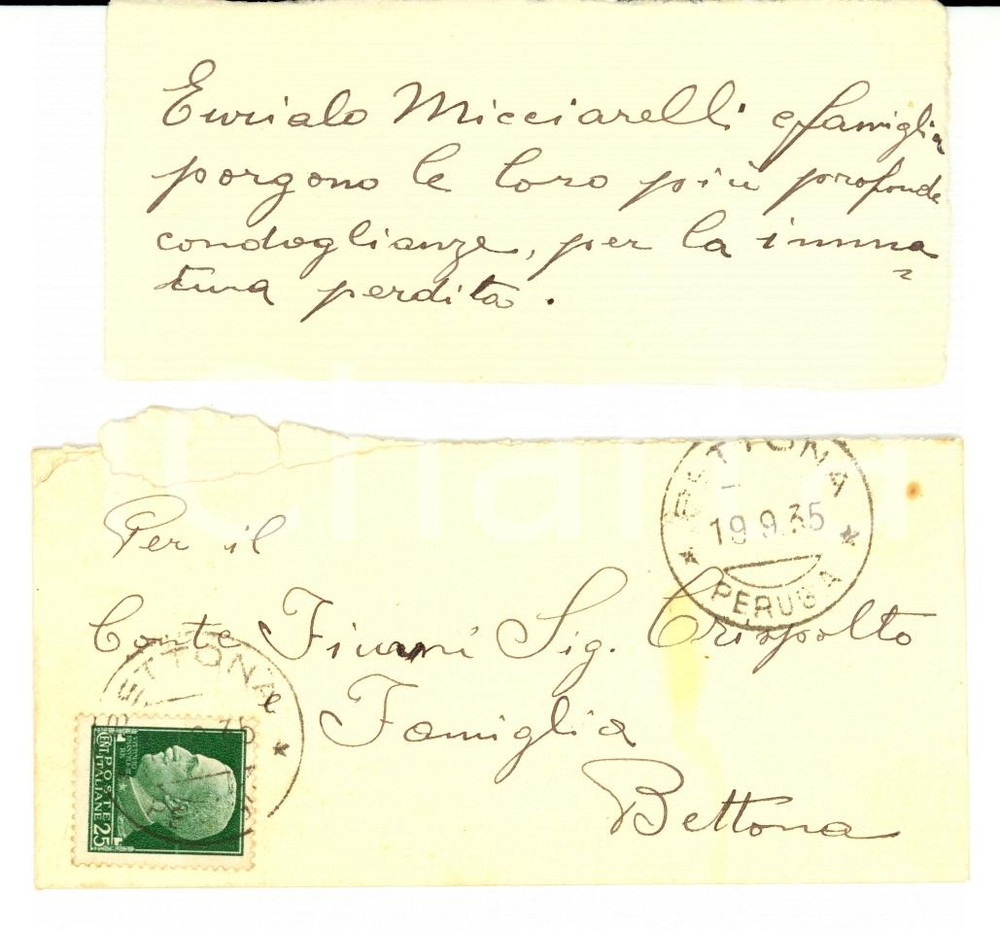 Eurialo Micciarelli e famiglia
porgono le loro più profonde
condoglianze, per la imma
tura perdita.
BETTONA
19.9.35
PERUGIA
Per il
Conte Fiumi Sig. Crispolto
e Famiglia
Bettona
BETTONA
POSTE ITALIANE
CENT 25